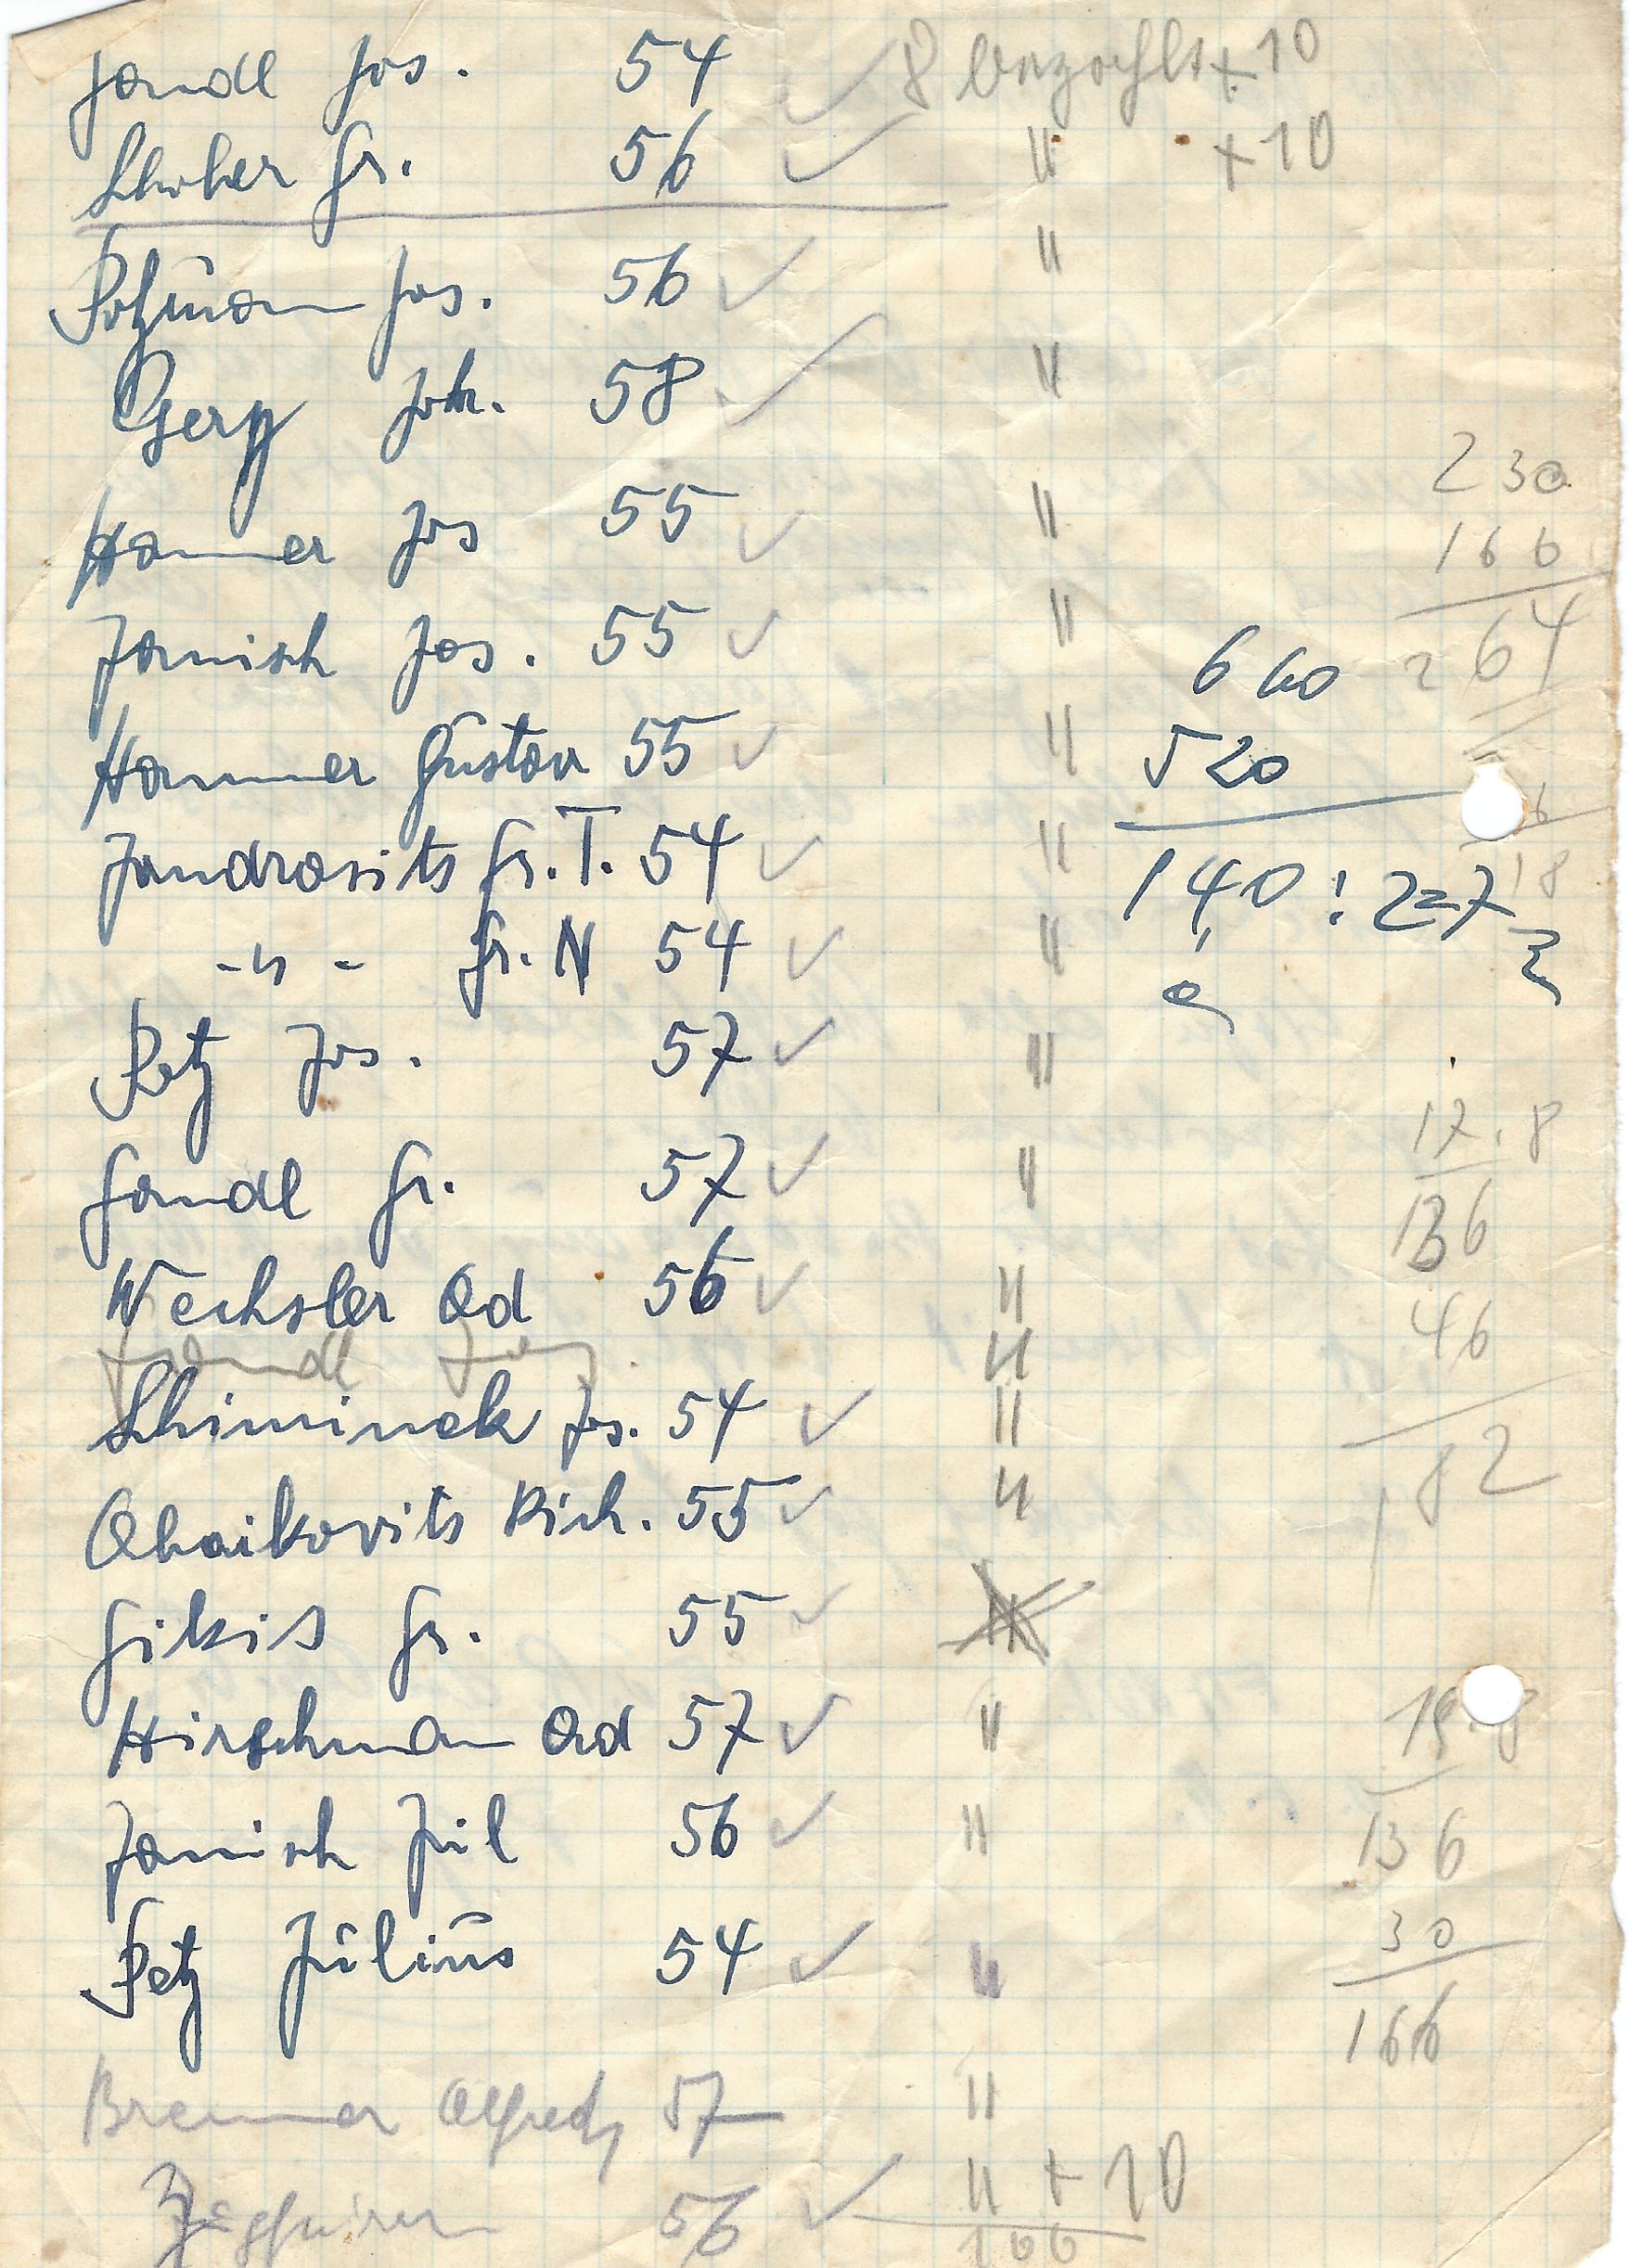 Jandl Jos. 54 ✓ 8 bezahlt +10
Schoher Fr. 56 ✓ " +10
Potzmann Jos. 56 ✓ "
Joh. 58 ✓ "
Hammer Jos 55 ✓ "
Janisch Jos. 55 ✓ "
Hammer Gustav 55 ✓ "
Jandrasits Fr. T. 54 ✓ "
-"- Fr. N 54 ✓ "
Petz Jos. 57 ✓ "
Jandl Fr. 57 ✓ "
Wechsler Ad 56 ✓ "
Jandl "
Schiminek Jos. 54 ✓ "
Rich. 55 ✓ "
Fikis Fr. 55 ✓
Hirschmann Ad 57 ✓ "
Janisch Jul 56 ✓ "
Petz Julius 54 ✓ "
Brenner Alfred 57 "
56 ✓ " +10
166
230
166
264
660
520
140 : 2 = 7
0
18
17.8
136
46
182
136
30
166